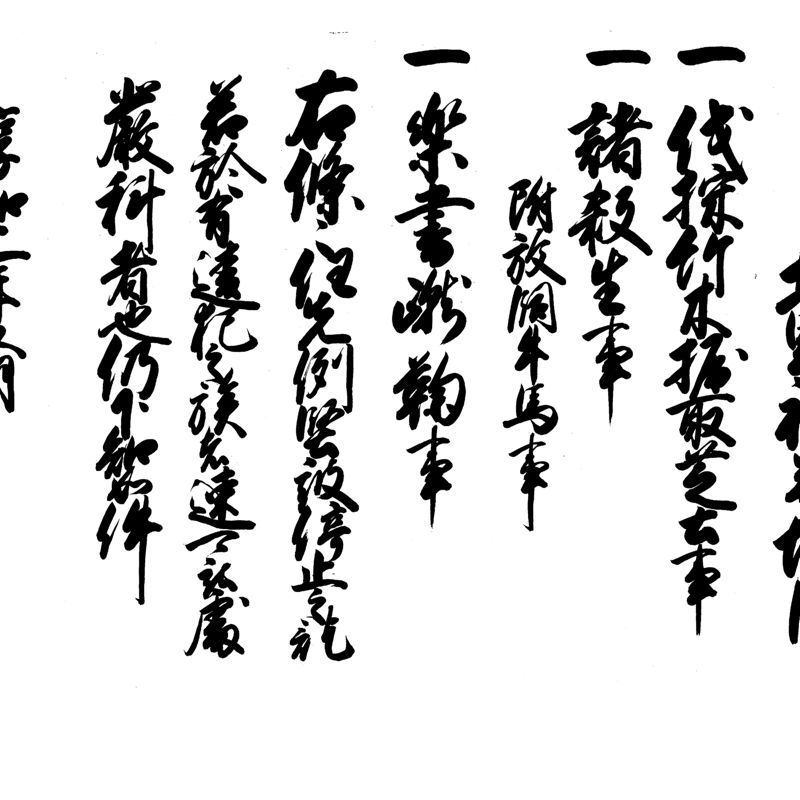 一 伐採竹木掘取芝土事
一 諸殺生事
附放飼牛馬事
一 楽書蹴鞠事
右條々任先例堅被停止之訖
若於有違犯之族者速可被處
厳科者也仍下知如件
年 月